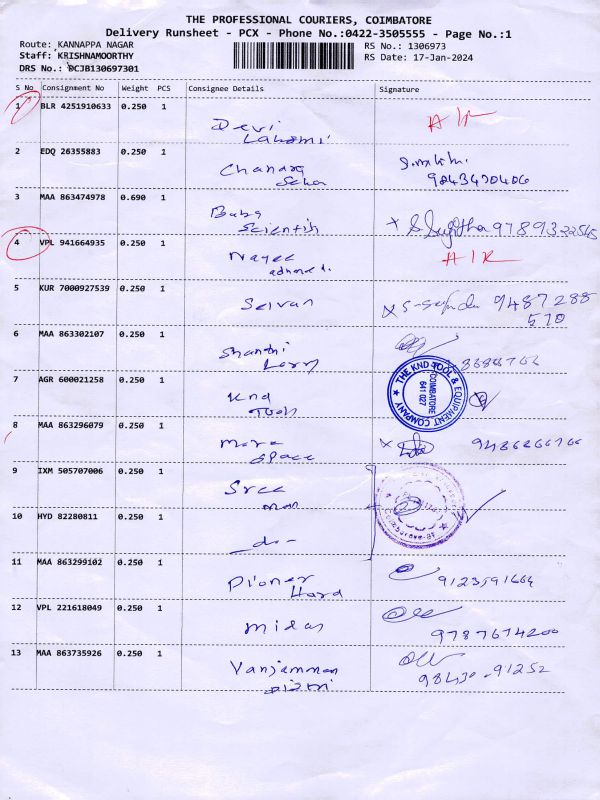 THE PROFESSIONAL COURIERS, COIMBATORE
Delivery Runsheet - PCX - Phone No.:0422-3505555 - Page No.:1
Route: KANNAPPA NAGAR
RS No.: 1306973
Staff: KRISHNAMOORTHY
RS Date: 17-Jan-2024
DRS No.: DCJB130697301
S No Consignment No Weight PCS Consignee Details Signature
1 BLR 4251910633 0.250 1
Devi
Lakshmi
2 EDQ 26355883 0.250 1
Chandra
3 MAA 863474978 0.690 1
Baba
Scientifi
4 VPL 941664935 0.250 1
AIR
5 KUR 7000927539 0.250 1
Selvan
9487288
570
6 MAA 863302107 0.250 1
Shanthi
Lorry
7 AGR 600021258 0.250 1
Knd
Tools
THE KND TOOL & EQUIPMENT COMPANY
COIMBATORE
641 027
8 MAA 863296079 0.250 1
Space
9 IXM 505707006 0.250 1
Sree
10 HYD 82280811 0.250 1
-do-
11 MAA 863299102 0.250 1
Pioner
Hard
12 VPL 221618049 0.250 1
Midas
9787674200
13 MAA 863735926 0.250 1
Vanjamman
98430-91252